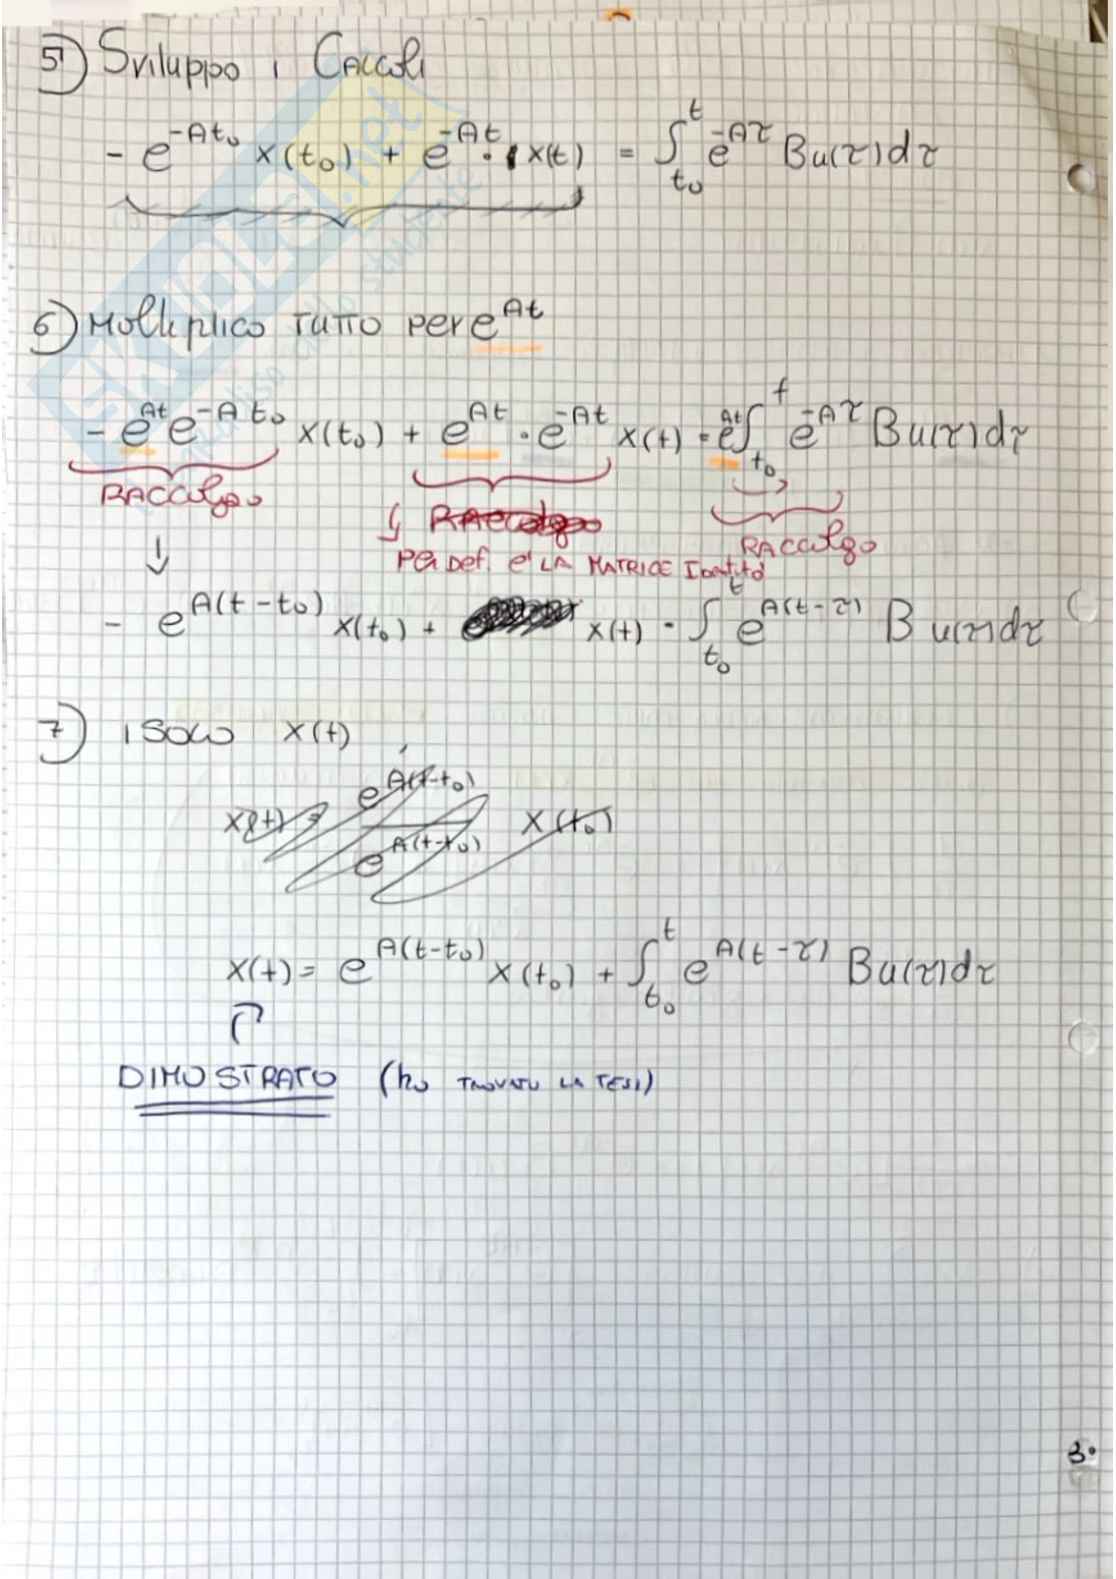 5) Sviluppo i Calcoli
- e^{-At₀} x(t₀) + e^{-At} · x(t) = ∫_{t₀}^{t} e^{-Aτ} Bu(τ)dτ
6) Moltiplico TUTTO per e^{At}
- e^{At} e^{-At₀} x(t₀) + e^{At} · e^{-At} x(t) = e^{At} ∫_{t₀}^{t} e^{-Aτ} Bu(τ)dτ
RACCOLGO
RACCOLGO
RACCOLGO
Per Def. e' LA MATRICE Identità
- e^{A(t-t₀)} x(t₀) + x(t) = ∫_{t₀}^{t} e^{A(t-τ)} B u(τ)dτ
7) ISOLO x(t)
x(t) = e^{A(t-t₀)} / e^{A(t-t₀)} x(t₀)
x(t) = e^{A(t-t₀)} x(t₀) + ∫_{t₀}^{t} e^{A(t-τ)} Bu(τ)dτ
DIMOSTRATO (ho TROVATO LA TESI)
3.
SKUOLA.net